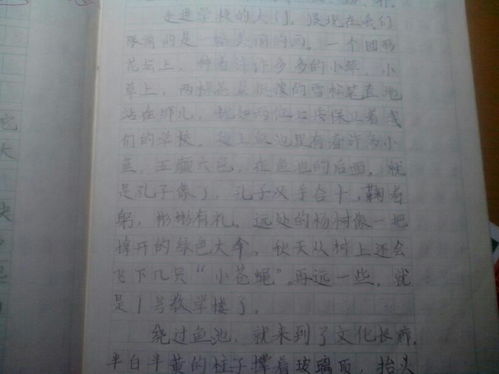 走进学校的大门，展现在我们
眼前的是一幅美丽的画。一个圆形
花坛上，种着许许多多的小草，小
草上，两棵 的雪松笔直地
站在那儿， 保卫着我
们的学校。 鱼池里有着许多小
鱼，五颜六色，在鱼池的后面，就
是孔子像了，孔子双手合十，鞠着
躬，彬彬有礼。远处的杨树像一把
撑开的绿色大伞，秋天从树上还会
飞下几只“小苍蝇”。再远一些，就
是1号教学楼了。
绕过鱼池，就来到了文化长廊，
半白半黄的柱子撑着玻璃顶，抬头